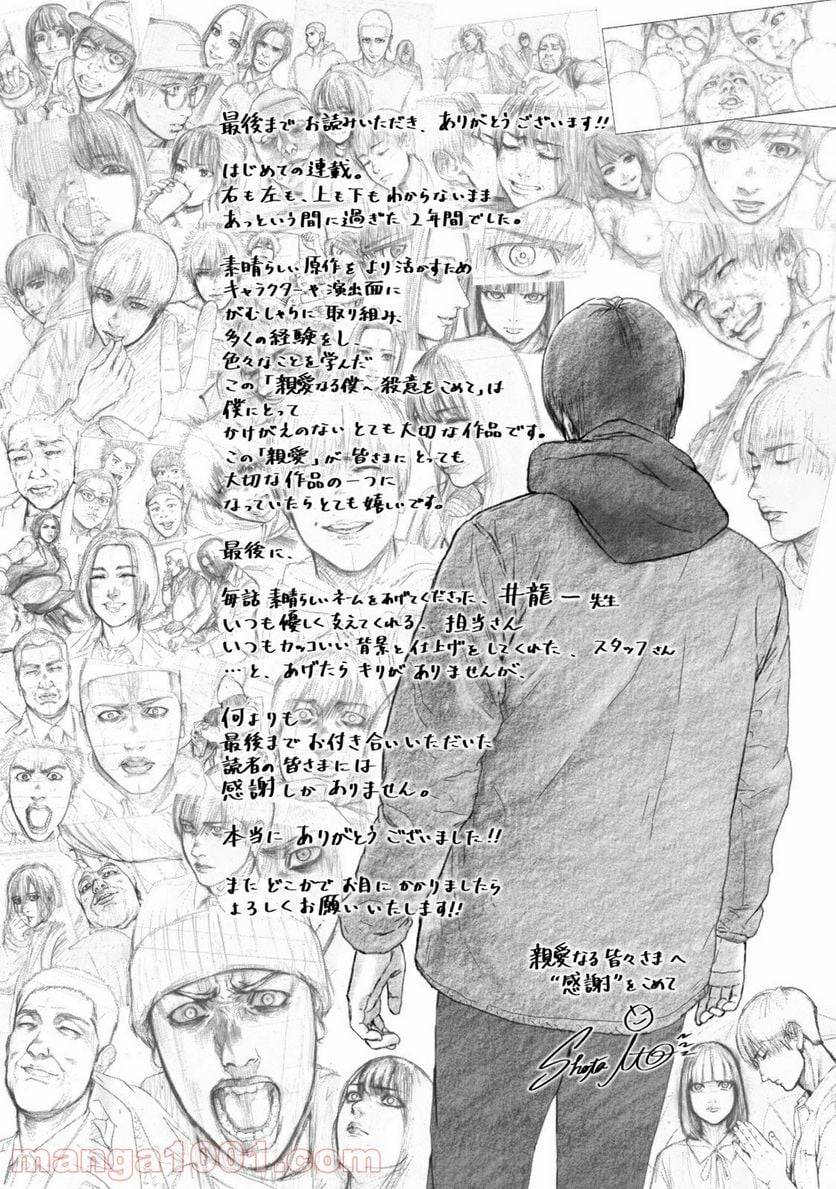 最後まで お読みいただき、ありがとうございます!!
はじめての連載。
右も左も、上も下もわからないまま
あっという間に過ぎた 2年間でした。
素晴らしい原作をより活かすため
キャラクターや演出面に
がむしゃらに取り組み、
多くの経験をし、
色々なことを学んだ
この「親愛なる僕へ殺意をこめて」は
僕にとって
かけがえのないとても大切な作品です。
この「親愛」が皆さまにとっても
大切な作品の一つに
なっていたらとても嬉しいです。
最後に、
毎話 素晴らしいネームをあげてくださった、井龍一 先生
いつも優しく支えてくれる、担当さん
いつもカッコいい背景と仕上げをしてくれた、スタッフさん
…と、あげたらキリがありませんが、
何よりも
最後までお付き合いいただいた
読者の皆さまには
感謝しかありません。
本当に ありがとうございました!!
またどこかでお目にかかりましたら
よろしくお願いいたします!!
親愛なる皆々さまへ
“感謝”をこめて
Shota Ito
manga1001.com